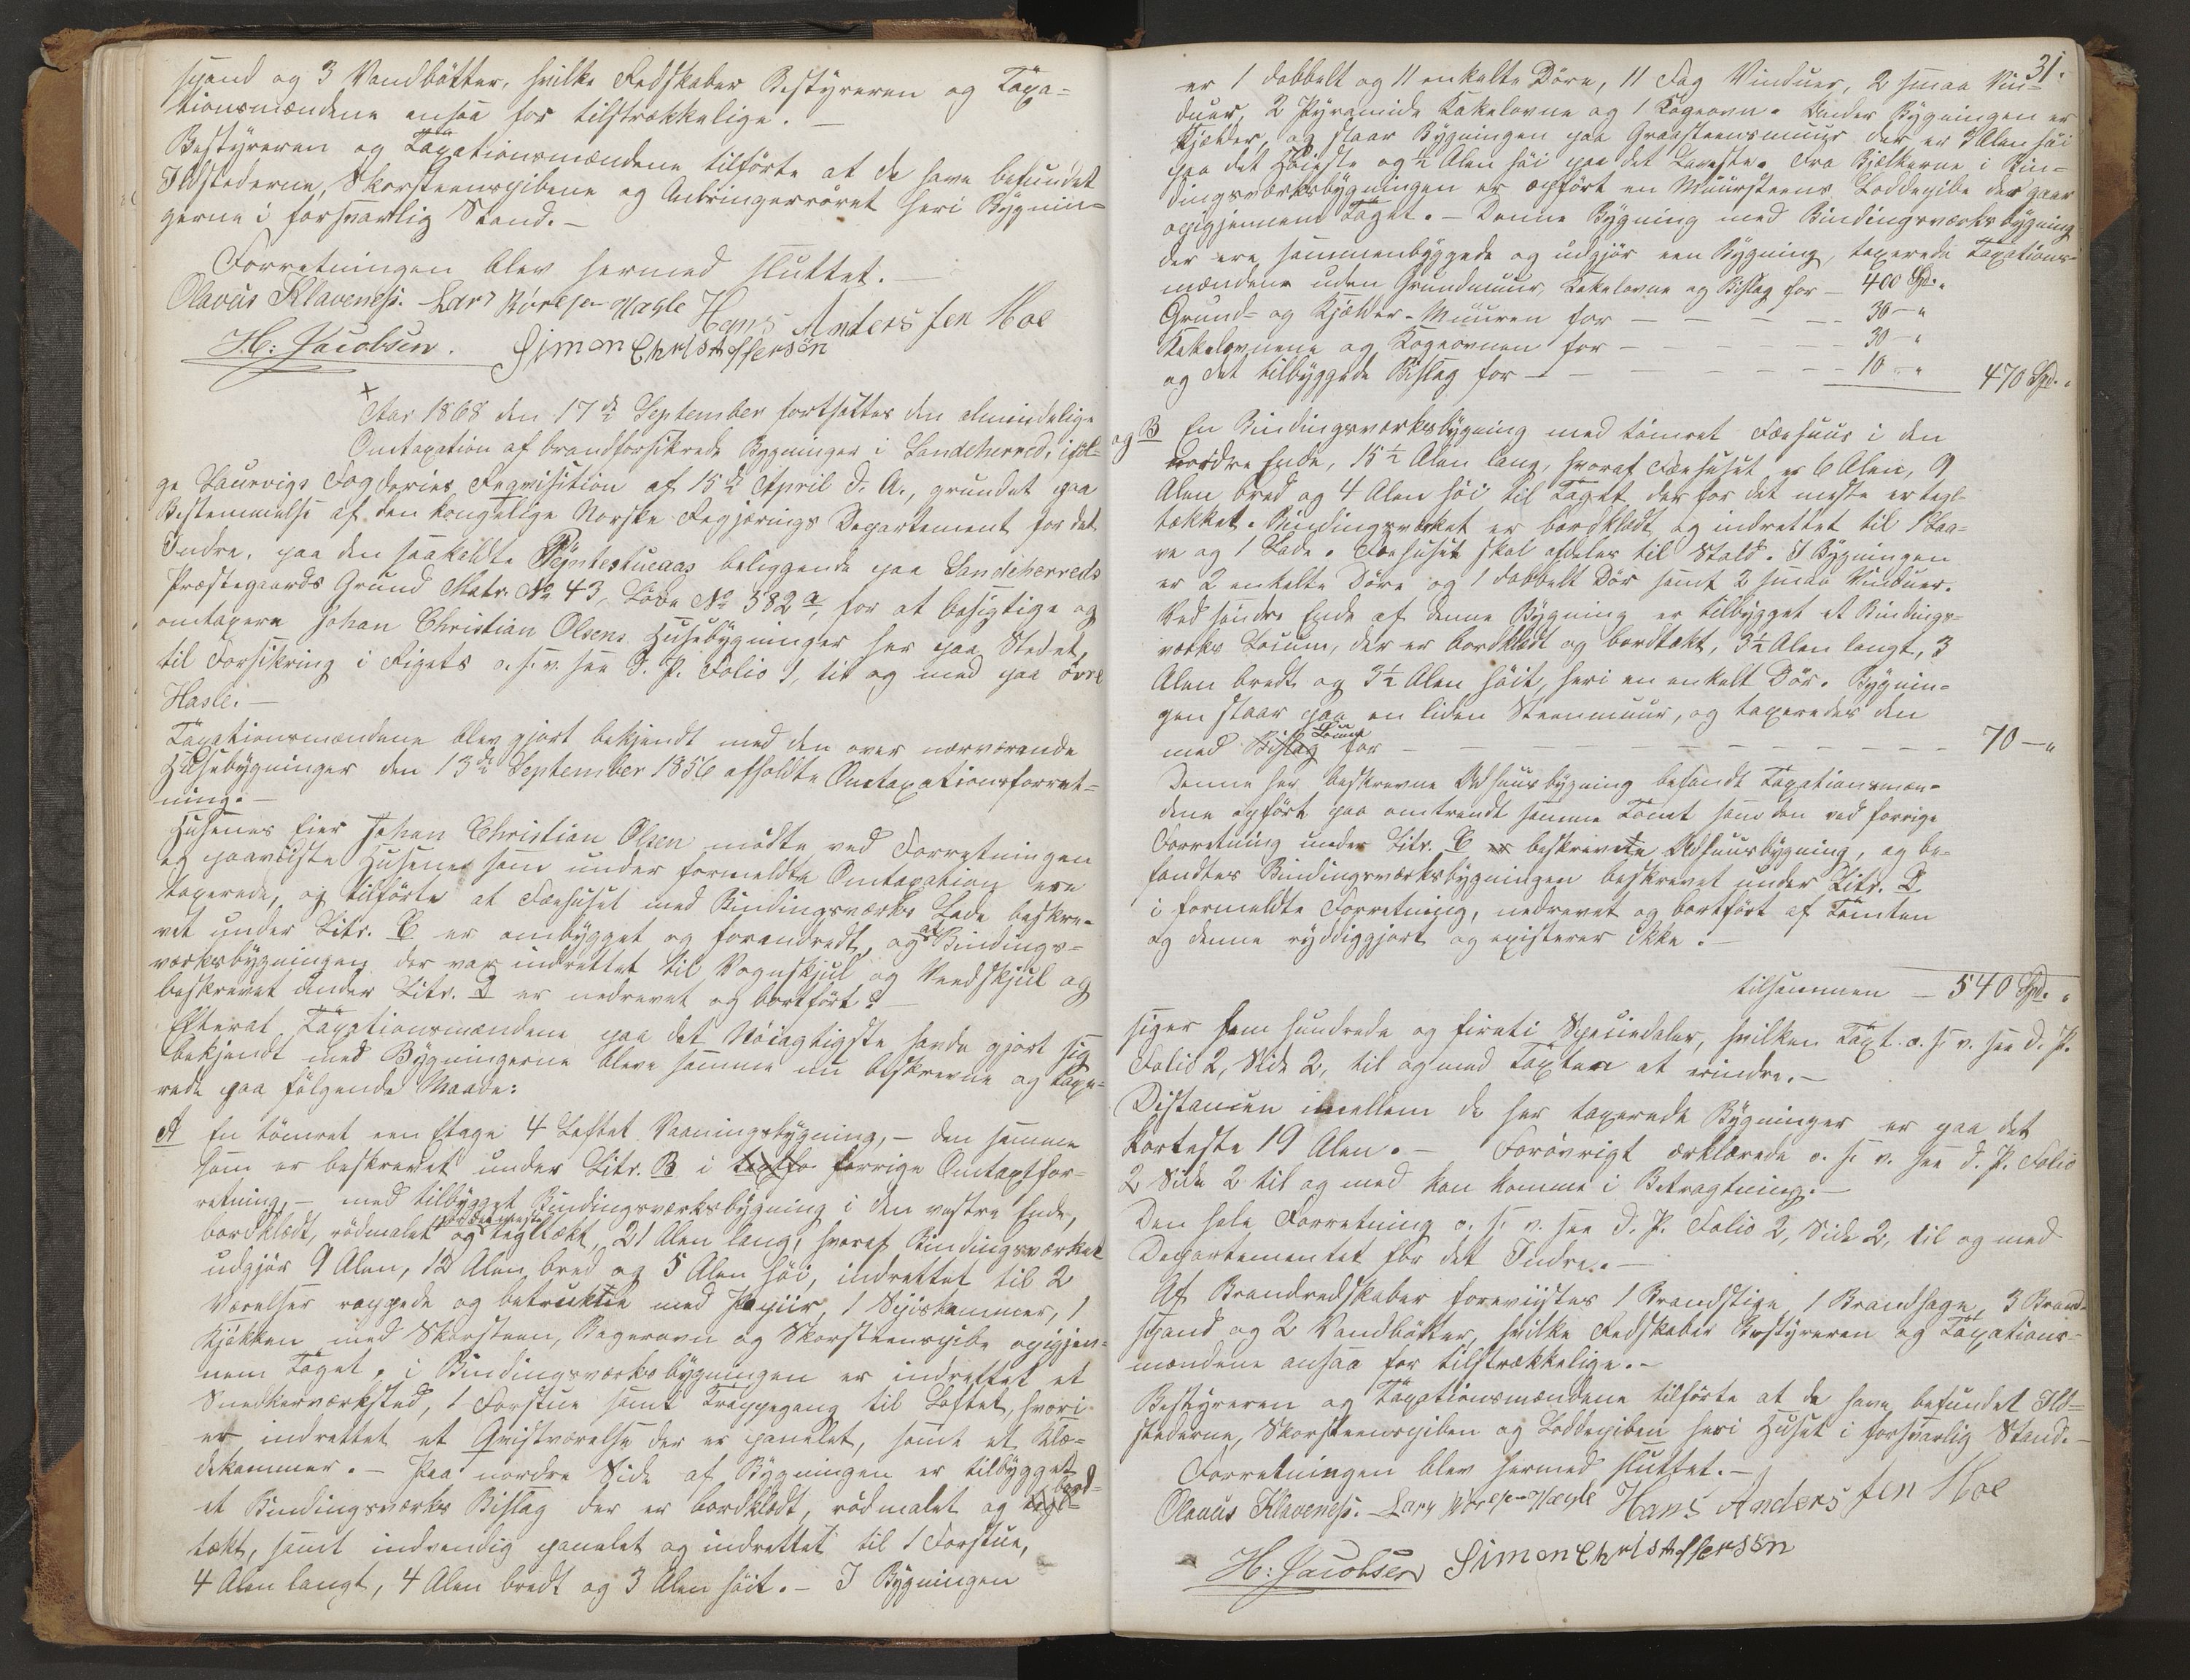 spand og 3 Vandbøtter, hvilke Redskaber Bestyreren og Taxa-
tionsmændene ansaa for tilstrækkelige. —
Bestyreren og Taxationsmændene tilførte at de have befundet
Ildstederne, Skorsteenspibene og Anbringerrøret heri Bygnin-
gerne i forsvarlig Stand. —
Forretningen blev hermed sluttet. —
Olavus Klavenesß. Lars Hasle Hans Andersßen Moe
H: Jacobsen. Simon Christoffersön
Aar 1868 den 17de September fortsattes den almindelige
Omtaxation af brandforsikrede Bygninger i Sandeherred, iføl-
ge Laurvigs Fogderies Reqvisition af 15de April d. A., grundet paa
Bestemmelse af den kongelige Norske Regjerings Departement for det
Indre, paa den saakaldte Pÿntestueaas beliggende paa Sandeherreds
Præstegaards Grund Matr: No 43, Løbe No 382 a, for at besigtige og
omtaxere Johan Christian Olsens Husebygninger her paa Stedet,
til Forsikring i Rigets o. s. v. see d. P. Folio 1, til og med paa øvre
Hasle. —
Taxationsmændene blev gjort bekjendt med den over nærværende
Husebygninger den 13de September 1856 afholdte Omtaxationsforret-
ning. —
Husenes Eier Johan Christian Olsen mødte ved Forretningen
og paaviiste Husene som under formeldte Omtaxation ere
taxerede, og tilførte at Fæehuset med Bindingsværks Lade beskre-
vet under Litr. C er ombygget og forandredt, og at Bindings-
værksbygningen der var indrettet til Vognskjul og Vedskjul og
beskrevet under Litr. D er nedrevet og bortført. —
Efterat Taxationsmændene paa det Nøiagtigste havde gjort sig
bekjendt med Bygningerne bleve samme nu beskrevne og taxe-
rede paa følgende Maade:
A En tømret een Etage 4 Loftet Vaaningsbygning, — den samme
som er beskrevet under Litr. B i forrige Omtaxtfor-
retning, — med tilbygget Bindingsværksbygning i den vestre Ende,
bordklædt, rødmalet og for det meste tegltækt, 21 Alen lang, hvoraf Bindingsværket
udgjør 9 Alen, 12 Alen bred og 5 Alen høi, indrettet til 2
Værelser rappede og betrukne med Papiir, 1 Spiiskammer, 1
Kjøkken med Skorsteen, Bagerovn og Skorsteenspibe opigjen-
nem Taget, i Bindingsværksbygningen er indrettet et
Snedkerværksted, 1 Forstue samt Trappegang til Loftet, hvori
er indrettet et Qvistværelse der er panelet, samt et Klæ-
dekammer. — Paa nordre Side af Bygningen er tilbygget
et Bindingsværks Bislag der er bordklædt, rødmalet og bord-
tækt, samt indvendig panelet og indrettet til 1 Forstue,
4 Alen langt, 4 Alen bredt og 3 Alen høit. — I Bygningen
31.
er 1 dobbelt og 11 enkelte Døre, 11 Fag Vinduer, 2 smaa Vin-
duer, 2 Pyramide Kakelovne og 1 Kogeovn. Under Bygningen er
Kjælder, og staar Bygningen paa Graasteensmuur der er 3 Alen høi
paa det Høieste og ½ Alen høi paa det Laveste. Fra Bjelkerne i Bin-
dingsværksbygningen er opført en Muursteens Loddepibe der gaar
opigjennem Taget. — Denne Bygning med Bindingsværksbygning
der ere sammenbyggede og udgjør een Bygning, taxerede Taxations-
mændene uden Grundmuur, Kakelovne og Bislag for — 400 Spd. "
Grund- og Kjelder-Muuren for — — — — — 30 — "
Kakelovnene og Kogeovnen for — — — — — 30 — "
og det tilbyggede Bislag for — — — — — — 10 — " 470 Spd. "
og B En Bindingsværksbygning med tømret Fæehuus i den
nordre Ende, 15½ Alen lang, hvoraf Fæehuset er 6 Alen, 9
Alen bred og 4 Alen høi til Taget der for det meste er tegl-
tækket. Bindingsværket er bordklædt og indrettet til 1 Laa-
ve og 1 Lade. Fæehuset skal afdeles til Stald. I Bygningen
er 2 enkelte Døre og 1 dobbelt Dør samt 2 smaa Vinduer.
Ved søndre Ende af denne Bygning er tilbygget et Bindings-
værks Locum, der er bordklædt og bordtækt, 3½ Alen langt, 3
Alen bredt og 3½ Alen høit, heri en enkelt Dør. Bygnin-
gen staar paa en liden Steenmuur, og taxeredes den
med Bislag Locum for — — — — — — — — — — 70 — "
Denne her beskrevne Udhuusbygning befandt Taxationsmæn-
dene opført paa omtrendt samme Tomt som den ved forrige
Forretning under Litr. C beskrevne Udhuusbygning, og be-
fandtes Bindingsværksbygningen beskrevet under Litr. D
i formeldte Forretning, nedrevet og bortført af Tomten
og denne ryddiggjort og existerer ikke. —
tilsammen — 540 Spd. "
siger fem hundrede og fireti Speciedaler, hvilken Taxt o. s. v. see d. P.
Folio 2, Side 2, til og med Taxten at erindre. —
Distancen imellem de her taxerede Bygninger er paa det
korteste 19 Alen. — Forøvrigt erklærede o. s. v. see d. P. Folio
2 Side 2 til og med kan komme i Betragtning. —
Den hele Forretning o. s. v. see d. P. Folio 2, Side 2, til og med
Departementet for det Indre. —
Af Brandredskaber foreviistes 1 Brandstige, 1 Brandhage, 3 Brand-
spand og 2 Vandbøtter, hvilke Redskaber Bestyreren og Taxations-
mændene ansaa for tilstrækkelige. —
Bestyreren og Taxationsmændene tilførte at de have befundet Ild-
stederne, Skorsteenspiben og Loddepiben heri Huset i forsvarlig Stand. —
Forretningen blev hermed sluttet. —
Olavus Klavenesß. Lars Hasle Hans Andersßen Moe
H: Jacobsen Simon Christoffersön